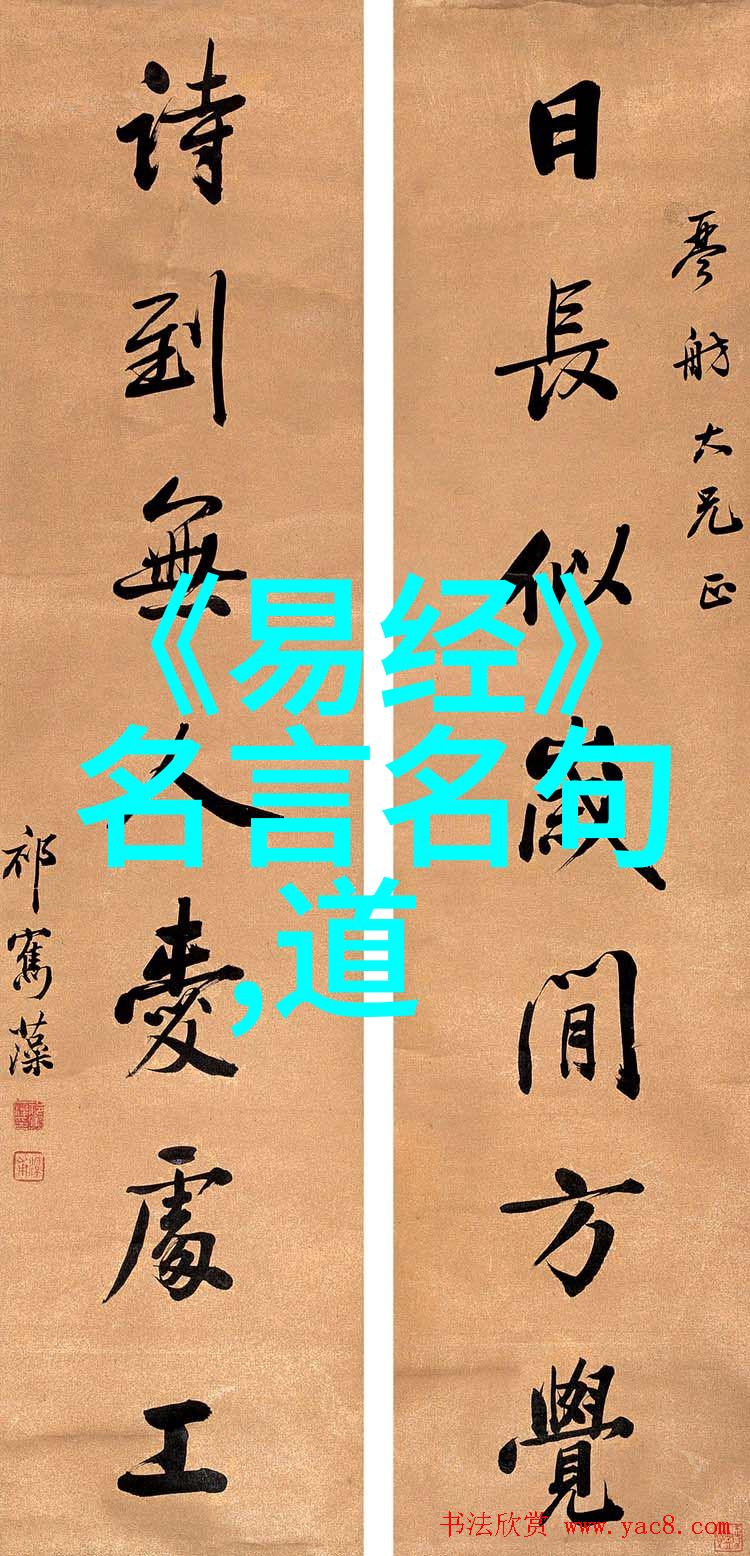 琴舫大兄正
日長似歲閒方覺
詩到無人愛處工
祁寯藻
《易经》
名言名句
,道
书法欣赏 www.yac8.com